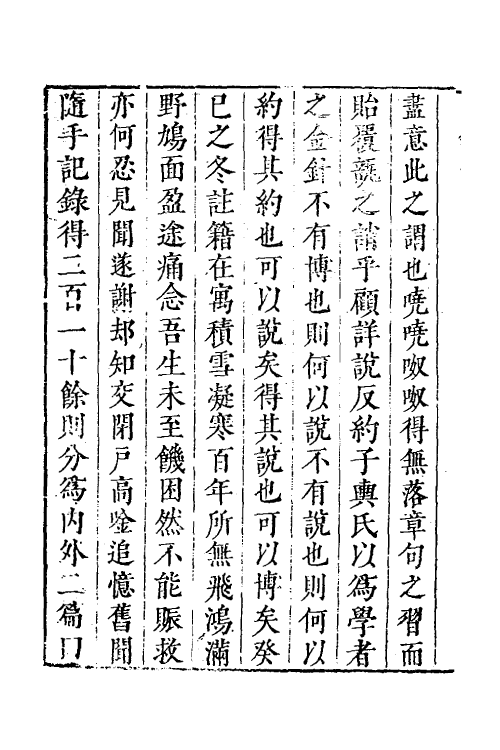 盡意此之謂也嘵嘵呶呶得無落章句之習而
貽覆瓿之誚乎顧詳說反約子輿氏以爲學者
之金針不有博也則何以說不有說也則何以
約得其約也可以說矣得其說也可以博矣癸
巳之冬註籍在寓積雪凝寒百年所無飛鴻滿
野鳩面盈途痛念吾生未至饑困然不能賑救
亦何忍見聞遂謝却知交閉戶高唫追憶舊聞
隨手記錄得二百一十餘則分爲內外二篇